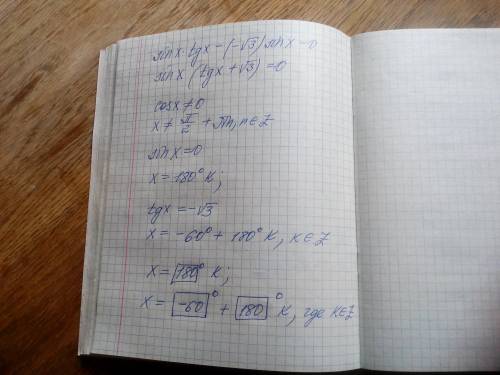 sinx·tgx-(-√3)sinx=0
sinx(tgx+√3)=0
cosx≠0
x≠π/2+πn, n∈Z
sinx=0
x=180°k;
tgx=-√3
x=-60°+180°k, k∈Z
x=180°k;
x=-60°+180°k, где k∈Z